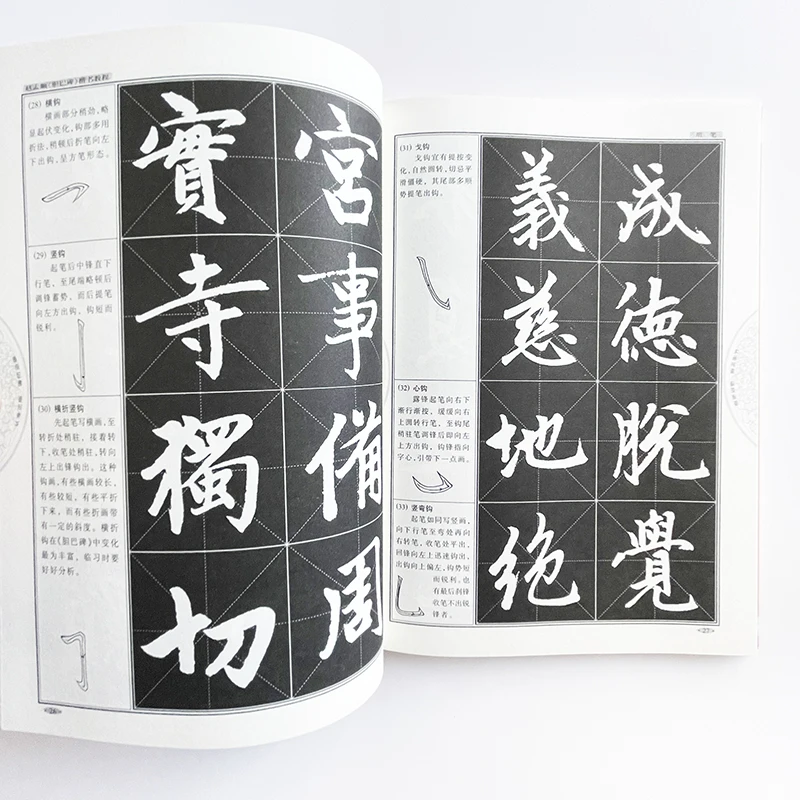 赵孟頫《胆巴碑》楷书教程
(28) 横钩
横画部分稍劲,略
显起伏变化,钩部多用
折法,稍顿后折笔向左
下出钩,呈方笔形态。
實
宮
(29) 竖钩
起笔后中锋直下
行笔,至尾端略顿后
调锋蓄势,而后提笔
向左方出钩,钩短而
锐利。
寺
事
(30) 横折竖钩
先起笔写横画,至
转折处稍驻,接着转
下,收笔处稍驻,转向
左上出锋钩出。这种
钩画,有些横画较长,
有些较短,有些平折
下来,而有些折画带
有一定的斜度。横折
钩在《胆巴碑》中变化
最为丰富,临习时要
好好分析。
獨
備
切
周
26
(31) 戈钩
戈钩宜有提按变
化,自然圆转,切忌平
滑僵硬,其尾部多顺
势提笔出钩。
義
成
慈
德
(32) 心钩
露锋起笔向右下
渐行渐按,缓缓向右
上圆转行笔,至钩尾
稍驻笔调锋后即向左
上方出钩,钩锋指向
字心,引带下一点画。
地
脱
(33) 竖弯钩
起笔如同写竖画,
向下行笔至弯处再向
右转笔,收笔处平出,
回锋向左上迅速钩出,
出钩向上偏左,钩势短
而锐利。也
有最后刹锋
收笔不出锐
锋者。
绝
覺
27